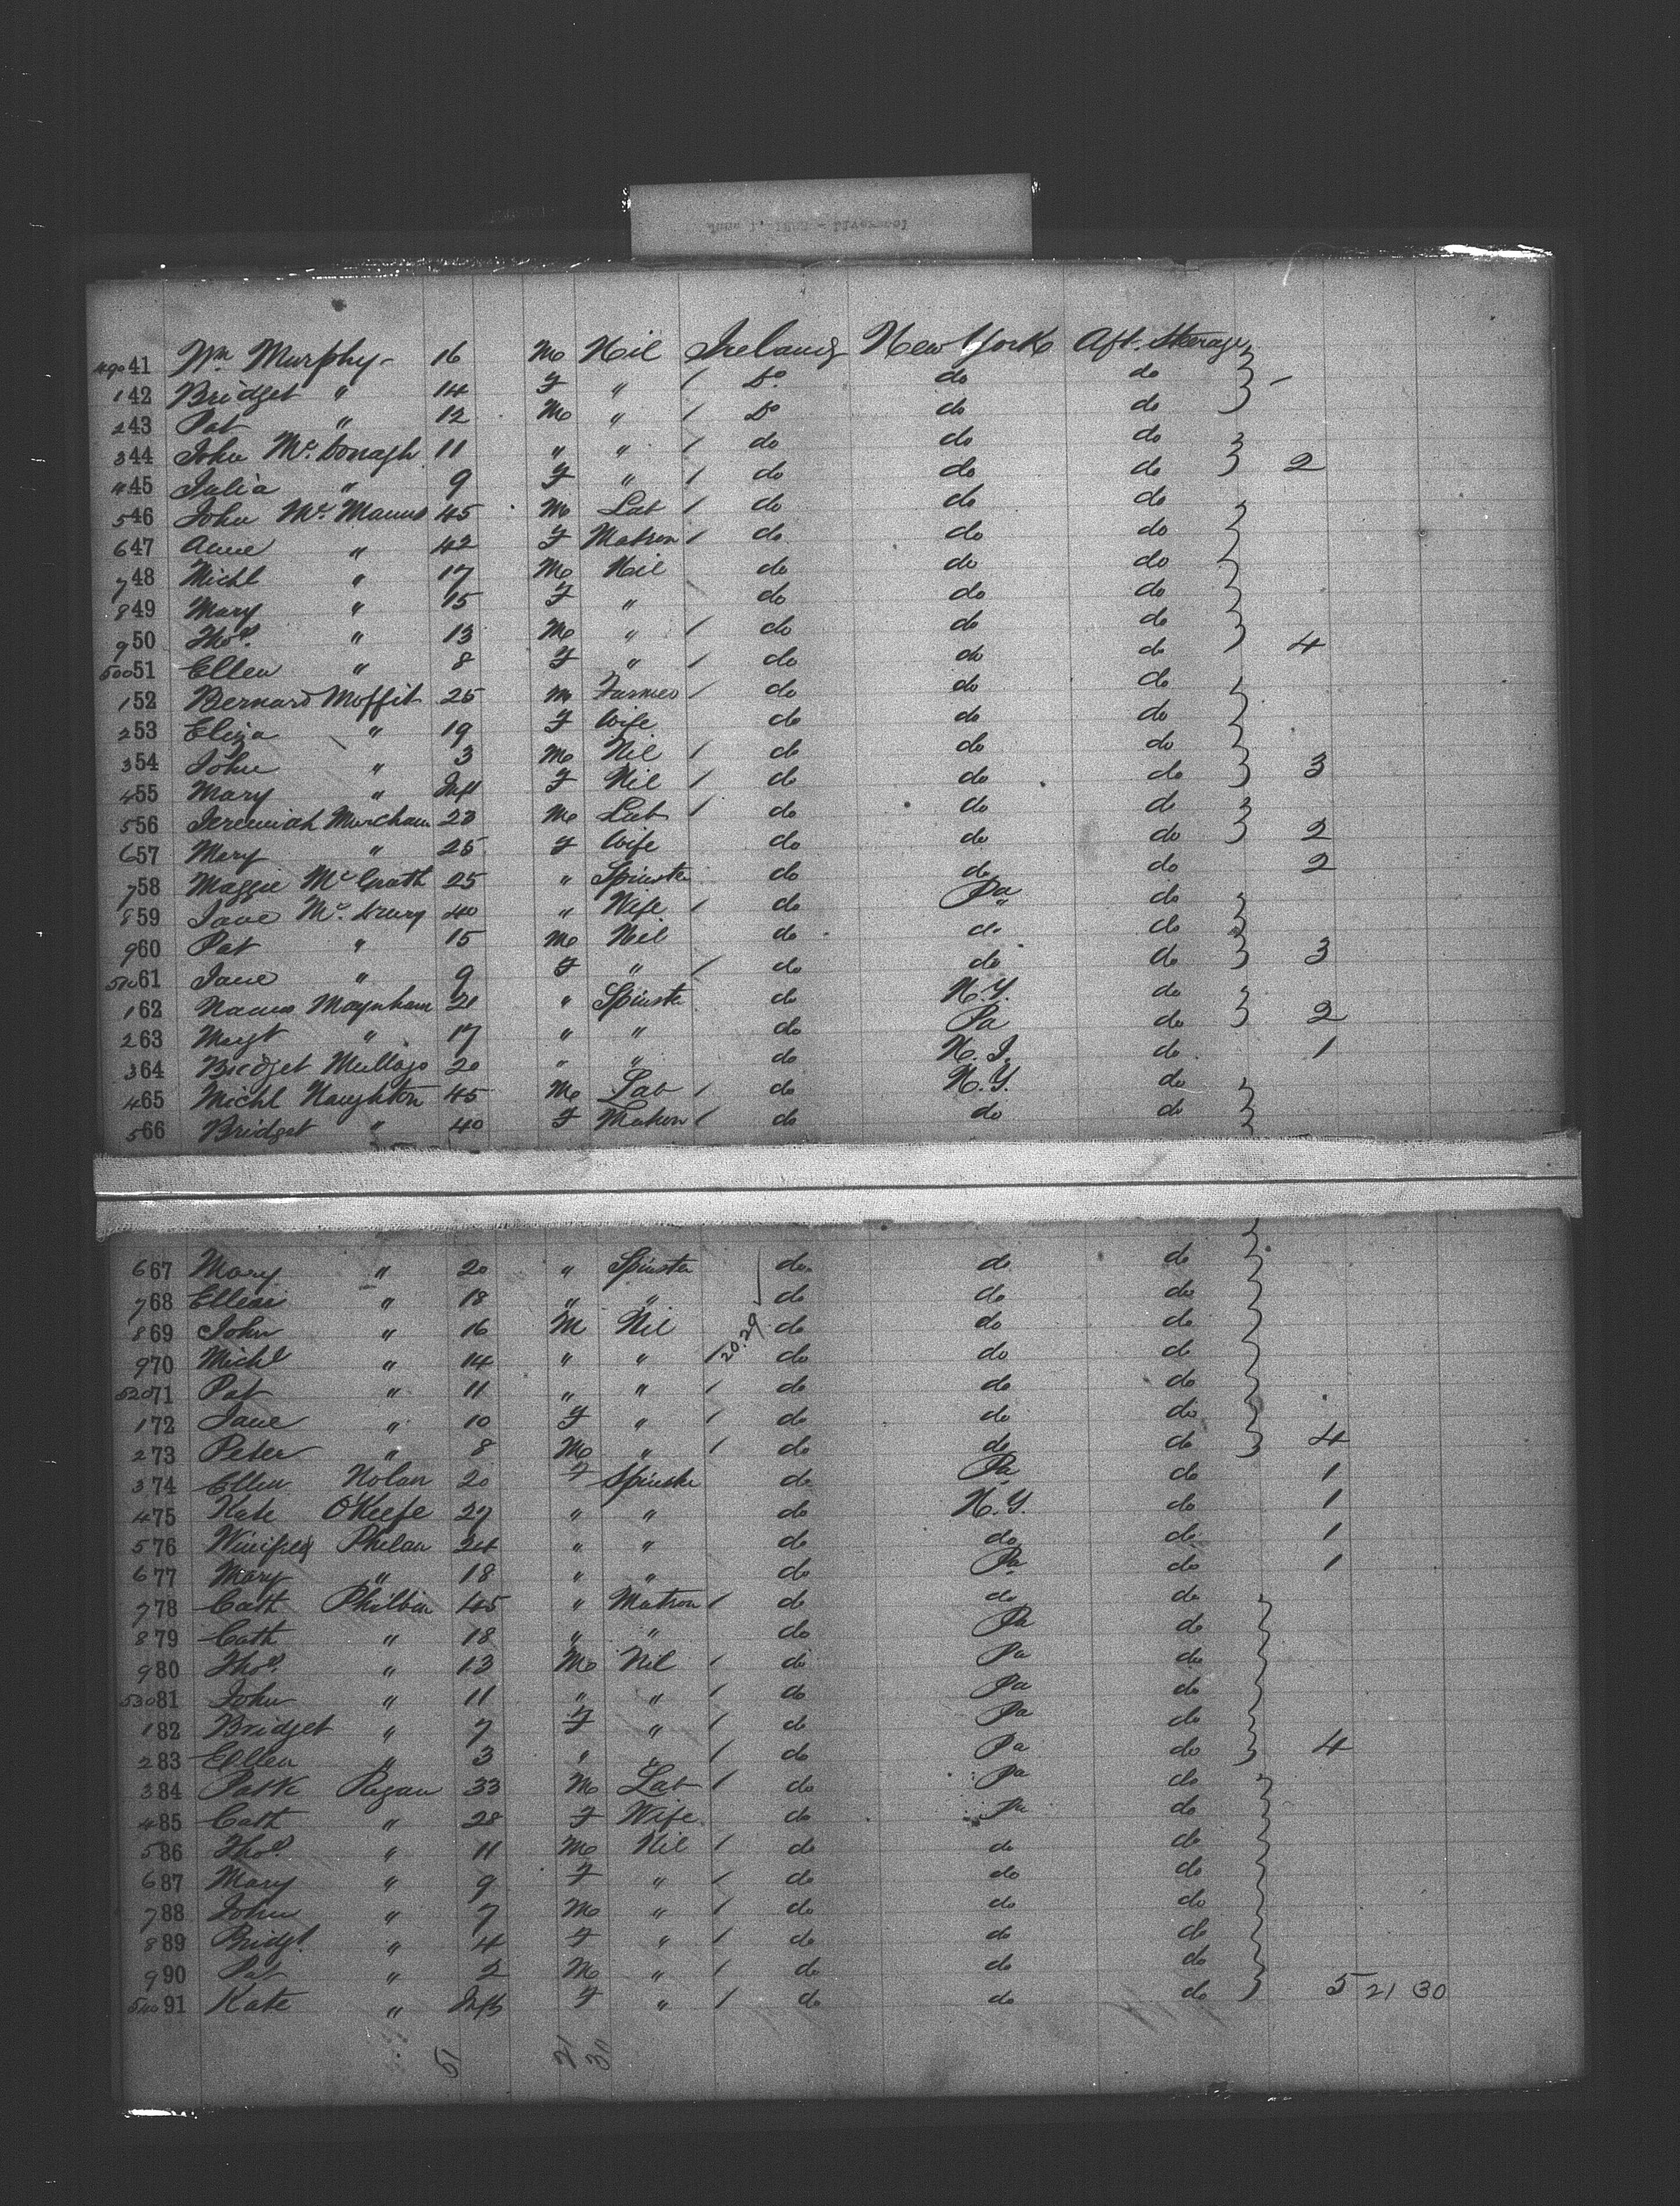 49041 Wm Murphy 16 M Nil Ireland New York Aft. Sterage
142 Bridget " 14 F " / Do do do
243 Pat " 12 M " / Do do do
344 John McDonagh 11 " " / do do do
445 Julia " 9 F " / do do do 2
546 John McManus 45 M Lab / do do do
647 Anne " 42 F Matron / do do do
748 Michl " 17 M Nil do do do
849 Mary " 15 F " do do do
950 Thos. " 13 M " / do do do 4
50051 Ellen " 8 F " / do do do
152 Bernard Moffit 25 M Farmer / do do do
253 Eliza " 19 F Wife do do do
354 John " 3 M Nil / do do do
455 Mary " Inft F Nil / do do do 3
556 Jeremiah 23 M Lab / do do do
657 Mary " 25 F Wife do do do 2
758 Maggie McGrath 25 " Spinster do do do 2
859 Jane 40 " Wife / do Pa do
960 Pat " 15 M Nil do do do
51061 Jane " 9 F " / do do do 3
162 21 " Spinster do N.Y. do
263 Margt " 17 " " do Pa do 2
364 Bridget 20 " " do do 1
465 Michl Naughton 45 M Lab / do N.Y. do
566 Bridget " 40 F Matron / do do do
667 Mary " 20 " Spinster do do do
768 Ellen " 18 " " do do do
869 John " 16 M Nil do do do
970 Michl " 14 " " / 20.29 do do do
52071 Pat " 11 " " / do do do
172 Jane " 10 F " / do do do
273 Peter " 8 M " / do do do 4
374 Ellen Nolan 20 F Spinster do Pa do 1
475 Kate O'Keefe 27 " " do N.Y. do 1
576 Winifred Phelan 24 " " do do do 1
677 Mary " 18 " " do Pa do 1
778 Cath Philbin 45 " Matron / do do do
879 Cath " 18 " " do Pa do
980 Thos. " 13 M Nil / do Pa do
53081 John " 11 " " / do Pa do
182 Bridget " 7 F " / do Pa do
283 Ellen " 3 " " / do Pa do 4
384 Patk Regan 33 M Lab / do Pa do
485 Cath " 28 F Wife do Pa do
586 Thos. " 11 M Nil / do do do
687 Mary " 9 F " / do do do
788 John " 7 M " / do do do
889 Bridgt " 4 F " / do do do
990 Pat " 2 M " / do do do
54091 Kate " Inft F " / do do do 5 21 30
51 21 30